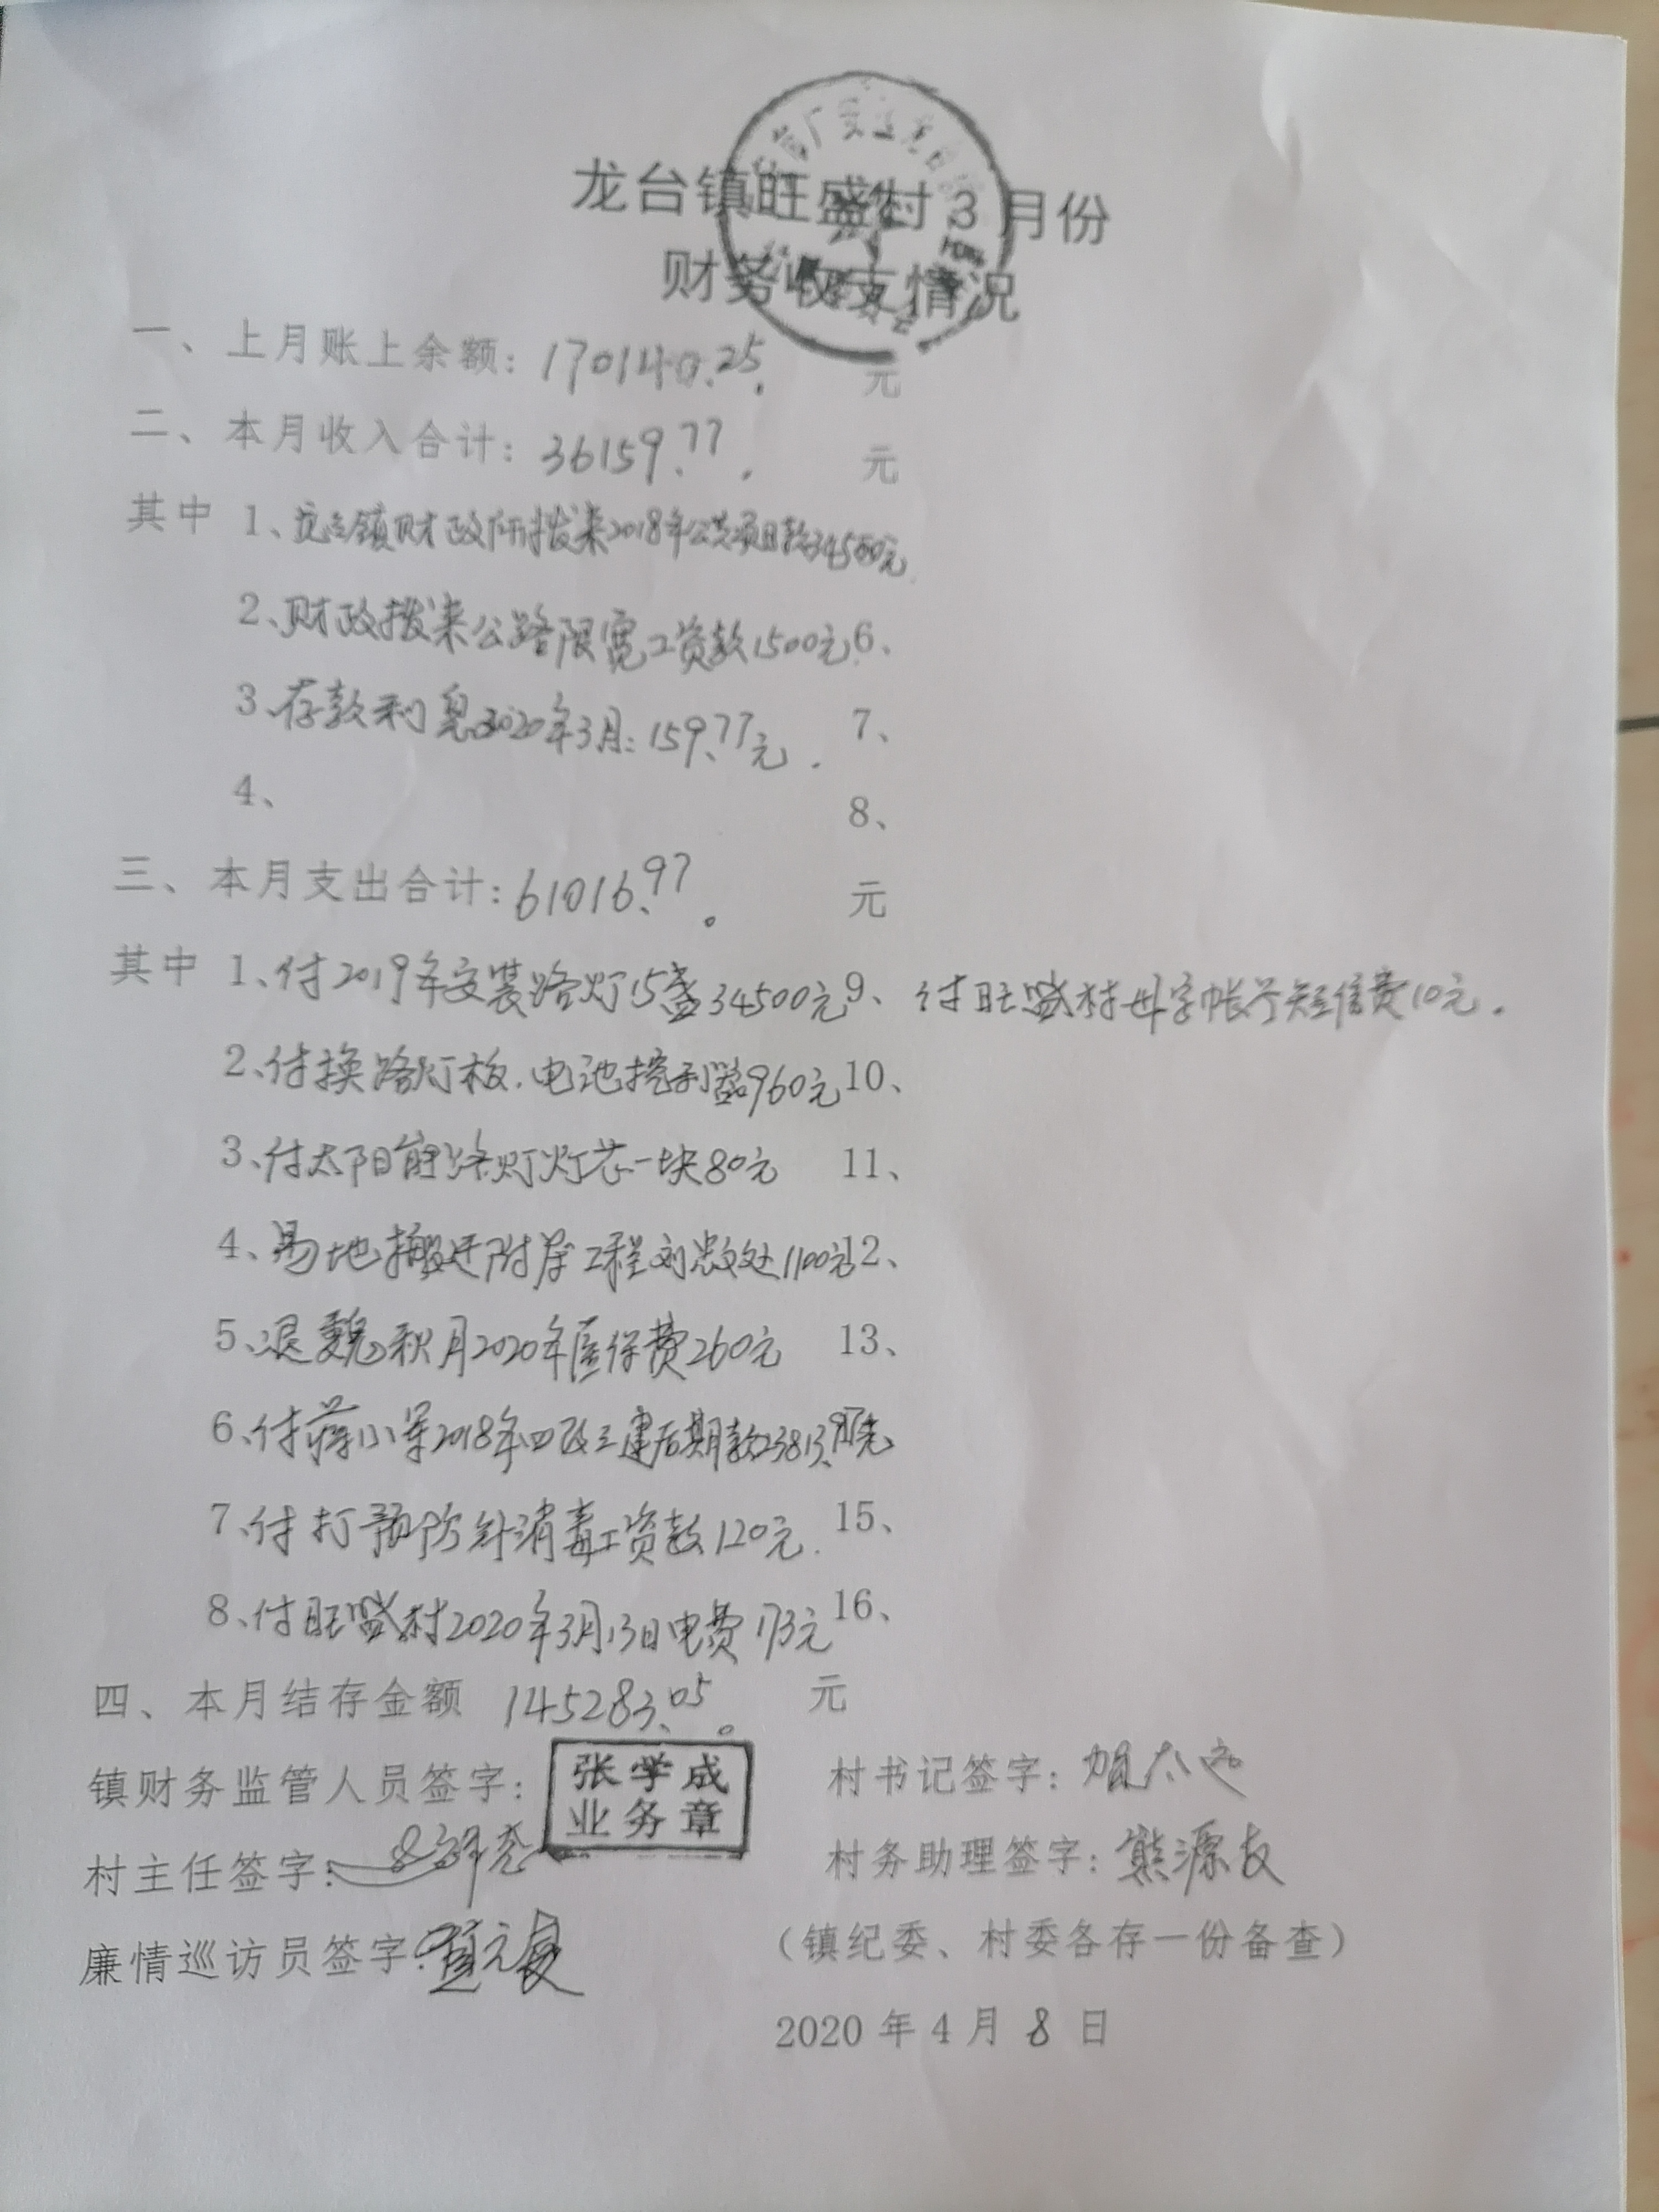 龙台镇旺盛村 3 月份
财务收支情况
一、上月账上余额：170140.25. 元
二、本月收入合计：36159.77. 元
其中 1、龙台镇财政所拨来2018年公共项目款34500元.
2、财政拨来公路限宽工资款1500元. 6、
3、存款利息2020年3月：159.77元. 7、
4、 8、
三、本月支出合计：61016.97。 元
其中 1、付2019年安装路灯15盏34500元 9、付旺盛村母字帐号短信费10元.
2、付换路灯板.电池控制器960元 10、
3、付太阳能路灯灯芯一块80元 11、
4、易地搬迁附属工程刘忠文处1100元 12、
5、退魏秋月2020年医保费260元 13、
6、付蒋小军2018年四改三建后期款23813.97元
7、付打预防针消毒工资款120元. 15、
8、付旺盛村2020年3月13日电费173元 16、
四、本月结存金额 145283.05。 元
镇财务监管人员签字： 张学成 村书记签字：
业务章
村主任签字： 村务助理签字：熊源友
廉情巡访员签字： （镇纪委、村委各存一份备查）
2020 年 4 月 8 日